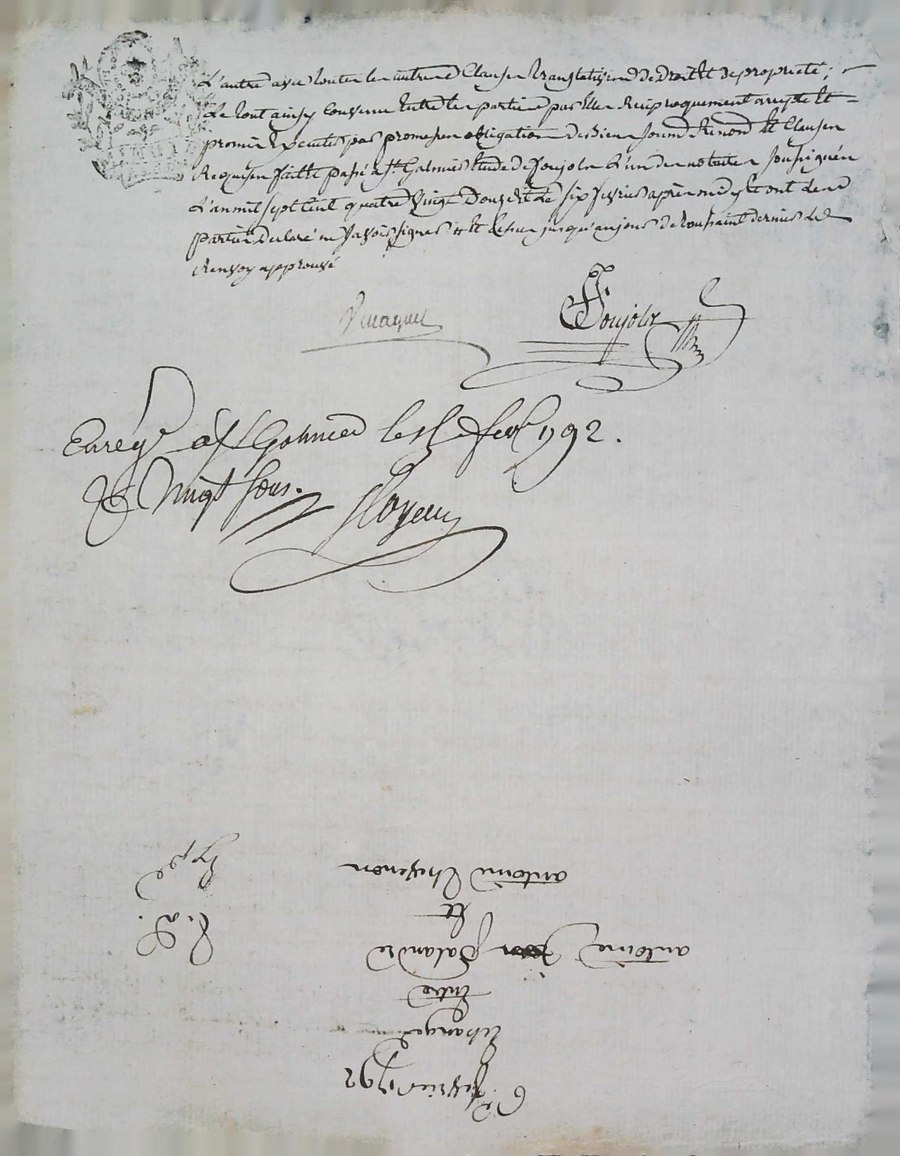 L'autre avec toutes les autres Clauses translatives de droit et de propriété ;
Le tout ainsy convenu Entre les parties par Elles Reciproquement accepté Et
promis Executer par promesse obligation de Biens soumis Renond Et Clauses
Requises faitte passé a St Galmier Etude de Soujols L'un des notaires soussignés
L'an mil sept Cent quatre Vingt Douze Et Le six fevrier après midy Et ont les
parties Declaré ne savoir signer Et jusqu'au jour de toussaint dernier
Renvoy approuvé
Soujols
Enregé a St Galmier le fevr 1792.
R Vingt sous.
6e fevrier 1792
Echange
Entre
antoine Palandre
Et
antoine Thevenon